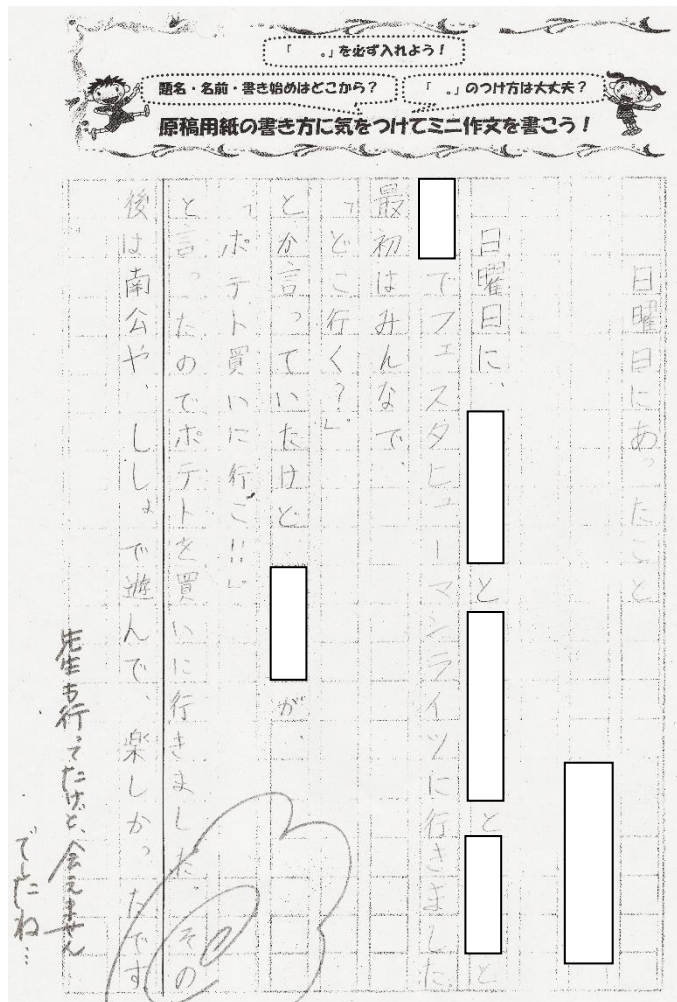 「　。」を必ず入れよう！
題名・名前・書き始めはどこから？
「　。」のつけ方は大丈夫？
原稿用紙の書き方に気をつけてミニ作文を書こう！
日曜日にあったこと
日曜日に、ととと
でフェスタヒューマンライツに行きました
最初はみんなで、
「どこ行く？」
とか言っていたけどが、
「ポテト買いに行こ!!」
と言ったのでポテトを買いに行きました。その
後は南公や、ししょで遊んで、楽しかったです
先生も行ってたけど、会えません
でしたね…